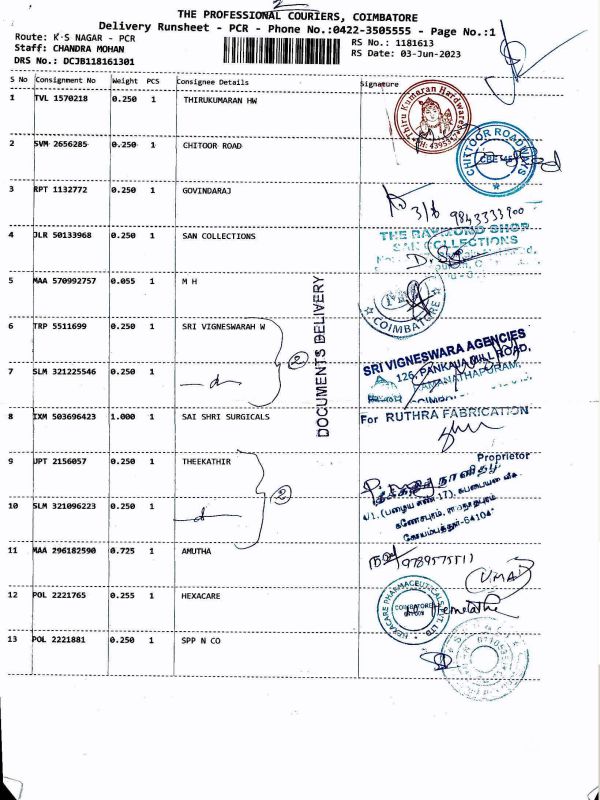 2
THE PROFESSIONAL COURIERS, COIMBATORE
Delivery Runsheet - PCR - Phone No.:0422-3505555 - Page No.:1
Route: K·S NAGAR - PCR
Staff: CHANDRA MOHAN
DRS No.: DCJB118161301
RS No.: 1181613
RS Date: 03-Jun-2023
S No Consignment No Weight PCS Consignee Details Signature
1 TVL 1570218 0.250 1 THIRUKUMARAN HW
Thiru Kumaran Hardwares
2 SVM 2656285 0.250 1 CHITOOR ROAD
CHITTOOR ROADWAYS
3 RPT 1132772 0.250 1 GOVINDARAJ
9843333900
4 JLR 50133968 0.250 1 SAN COLLECTIONS
THE RAYMOND SHOP
SAN COLLECTIONS
5 MAA 570992757 0.055 1 M H
COIMBATORE
DOCUMENTS DELIVERY
6 TRP 5511699 0.250 1 SRI VIGNESWARAH W
2
SRI VIGNESWARA AGENCIES
126, PANKAJA MILL ROAD,
RAMANATHAPURAM,
7 SLM 321225546 0.250 1
8 IXM 503696423 1.000 1 SAI SHRI SURGICALS
For RUTHRA FABRICATION
Proprietor
9 JPT 2156057 0.250 1 THEEKATHIR
2
4/1, (பழைய எண் 17),
கணேசபுரம்,
கோயம்புத்தூர்-64104
10 SLM 321096223 0.250 1
11 MAA 296182590 0.725 1 AMUTHA
9789575511
(UMA)
12 POL 2221765 0.255 1 HEXACARE
HEXACARE PHARMACEUTICALS PVT. LTD
COIMBATORE
Hemelatha
13 POL 2221881 0.250 1 SPP N CO